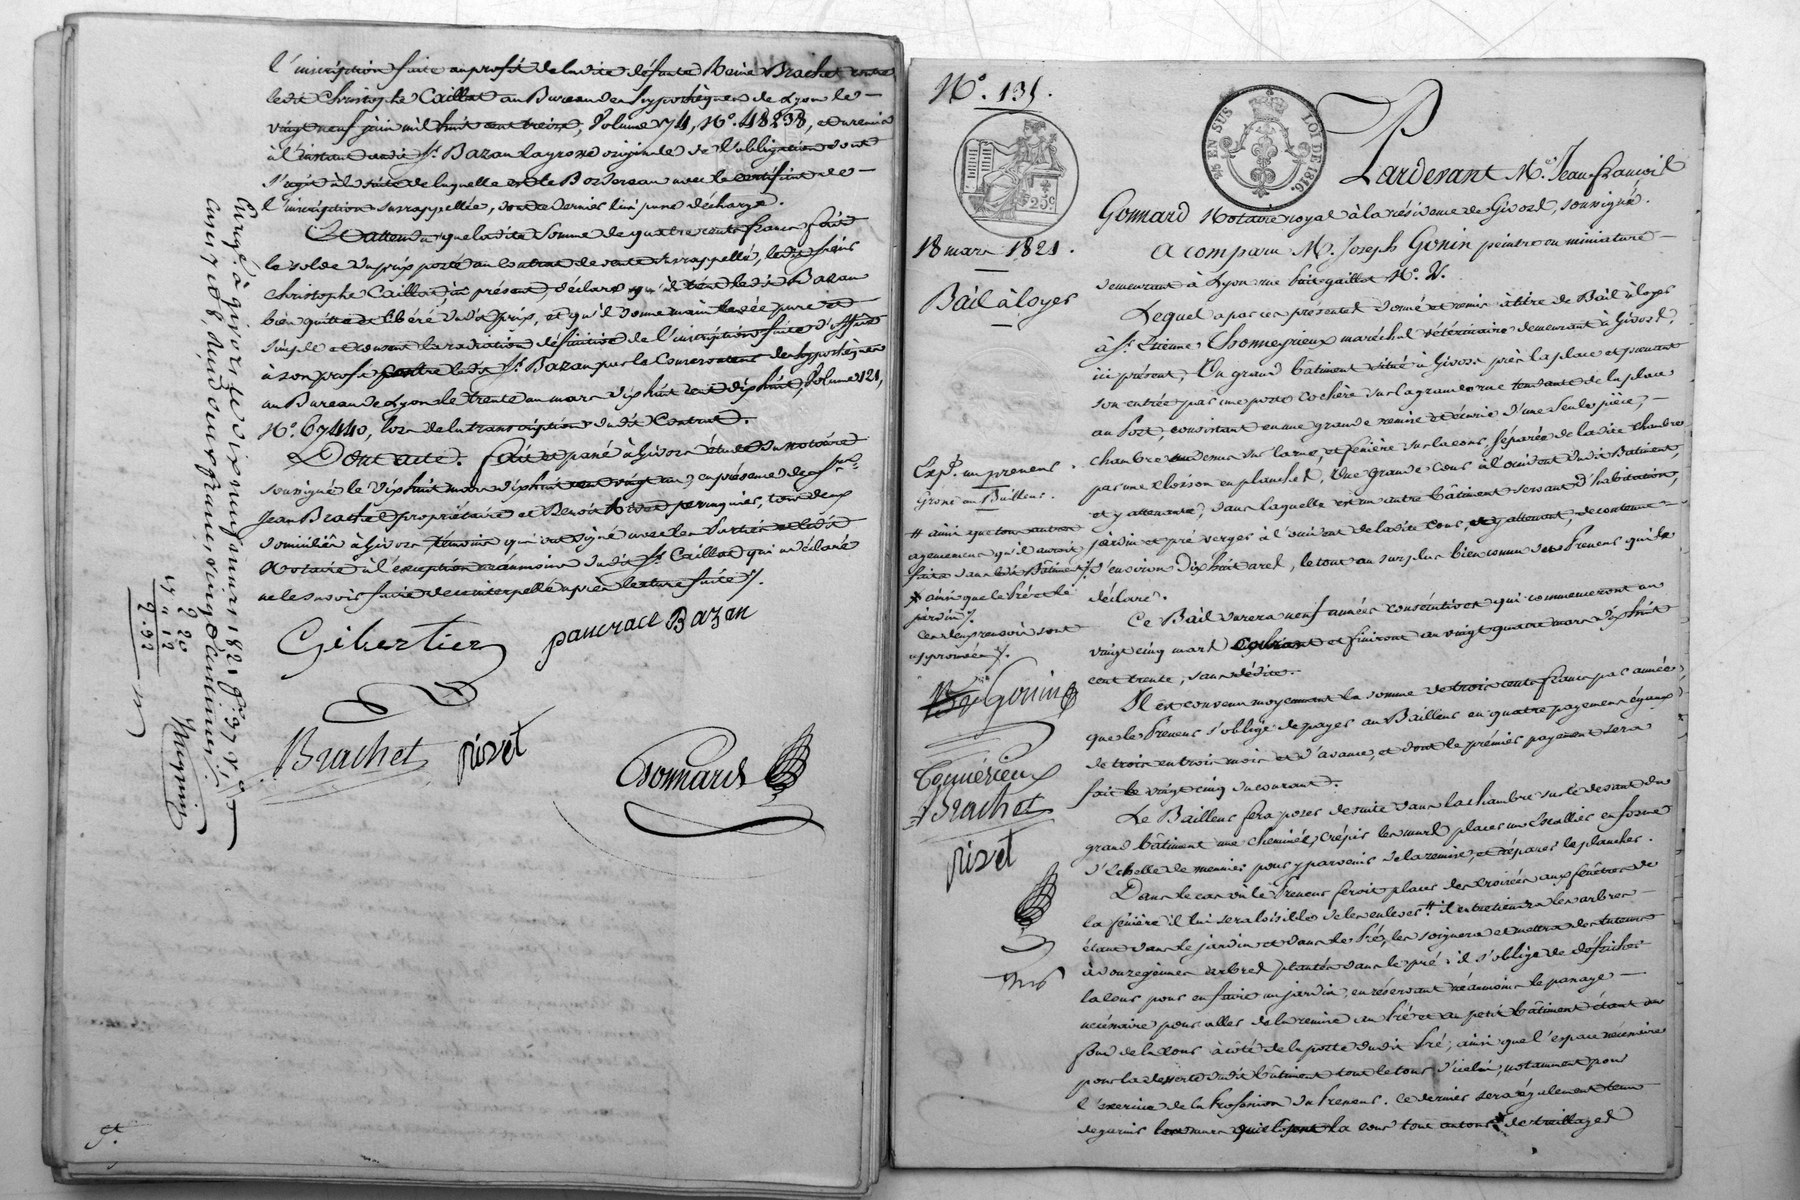 l'inscription faite au profit de ladite défunte Reine Brachet contre
ledit Christophe Caillat au Bureau des hypothèques de Lyon le
vingt neuf juin mil huit cent treize, Volume 174, N.° 48238, et a remis
à l'instant audit S.r Bazan la grosse originale de l'obligation dont
s'agit à la suite de laquelle est le Bordereau avec le certificat de
l'inscription susrappellée, dont ce dernier lui passe décharge.
Et attendu que ladite somme de quatre cents francs fait
le solde du prix porté au contrat de vente susrappellé, ledit sieur
Christophe Caillat, ici présent, déclare qu'il tient ledit Bazan
bien quitte et libéré dudit prix, et qu'il donne main levée pure et
simple et consent la radiation définitive de l'inscription faite d'office
à son profit contre ledit S.r Bazan par le Conservateur des hypothèques
au Bureau de Lyon le trente un mars dix huit cent dix huit, Volume 121,
N.° 67440, lors de la transcription dudit Contrat.
Dont acte. fait et passé à Givors étude du notaire
soussigné le dix huit mars dix huit cent vingt un, en présence de
Jean Brachet propriétaire et Benoit Rivet perruquier, tous deux
domiciliés à Givors témoins qui ont signé avec les Parties et ledit
Notaire à l'exception néanmoins dudit S.r Caillat qui a déclaré
ne le savoir faire de ce interpellé après lecture faite ./.
Gibertier
pancrace Bazan
Brachet
rivet
Gonnard
N.° 135.
EN SUS
LOI DE 1816.
25c
18 mars 1821.
Bail à loyer
Pardevant M.e Jean François
Gonnard Notaire royal à la résidence de Givors, soussigné.
A comparu M. Joseph Gonin peintre en miniature
demeurant à Lyon rue
Lequel a par ces présentes donné et remis à titre de Bail à loyer
à S.r Etienne Thonnerieux maréchal vétérinaire demeurant à Givors,
ici présent, Un grand bâtiment situé à Givors près la place et prenant
son entrée par une porte cochère sur la grande rue tendante de la place
au Port, consistant en une grande remise et écurie d'une seule pièce,
chambre au dessus sur la rue, et fenière sur la cour, séparée de ladite chambre
par une cloison en planches, Une grande cour à l'occident dudit Bâtiment,
et y attenante, dans laquelle est un autre bâtiment servant d'habitation,
jardin et pré verger à l'occident de ladite cour, et y attenant, de contenue
d'environ dix huit ares, le tout au surplus bien connu du Preneur qui l'a
déclaré.
Ce Bail durera neuf années consécutives qui commenceront au
vingt cinq mars courant et finiront au vingt quatre mars dix huit
cent trente, sans dédite.
Il est convenu moyennant la somme de trois cents francs par année
que le Preneur s'oblige de payer au Bailleur en quatre payemens égaux
de trois en trois mois et d'avance, et dont le premier payement sera
fait le vingt cinq du courant.
Le Bailleur fera poser de suite dans la chambre sur le devant du
grand bâtiment une cheminée, crépir les murs placer un Escallier en forme
d'Echelle de meunier pour y parvenir de la remise, et réparer le plancher.
Dans le cas où le Preneur feroit placer des croisées aux fenêtres de
la fenière il lui sera loisible de les enlever # il entretiendra les arbres
étant dans le jardin et dans le Pré, les soignera et mettra des tuteurs
à douze jeunes arbres plantés dans le pré ; il s'oblige de défricher
la cour pour en faire un jardin, en réservant néanmoins le passage
nécessaire pour aller de la remise au Pré et au petit bâtiment étant au
fond de la cour à côté de la porte dudit Pré ; ainsi que l'espace nécessaire
pour la desserte dudit bâtiment tout le tour d'icelui, notamment pour
l'exercice de la Profession du Preneur. ce dernier sera également tenu
de garnir les murs la cour tout autour de treillages
Exp.on au preneur.
Grosse au Bailleur.
# ainsi que tous autres
agencemens qu'il auroit
faits dans led. Bâtiment ./.
* ainsi que le Pré et le
jardin ./.
Ces deux renvois sont
approuvés ./.
Gonin
Tonnérieux
Brachet
rivet
Enregé. à Givors le dix neuf janvier 1821
9 20
9.92